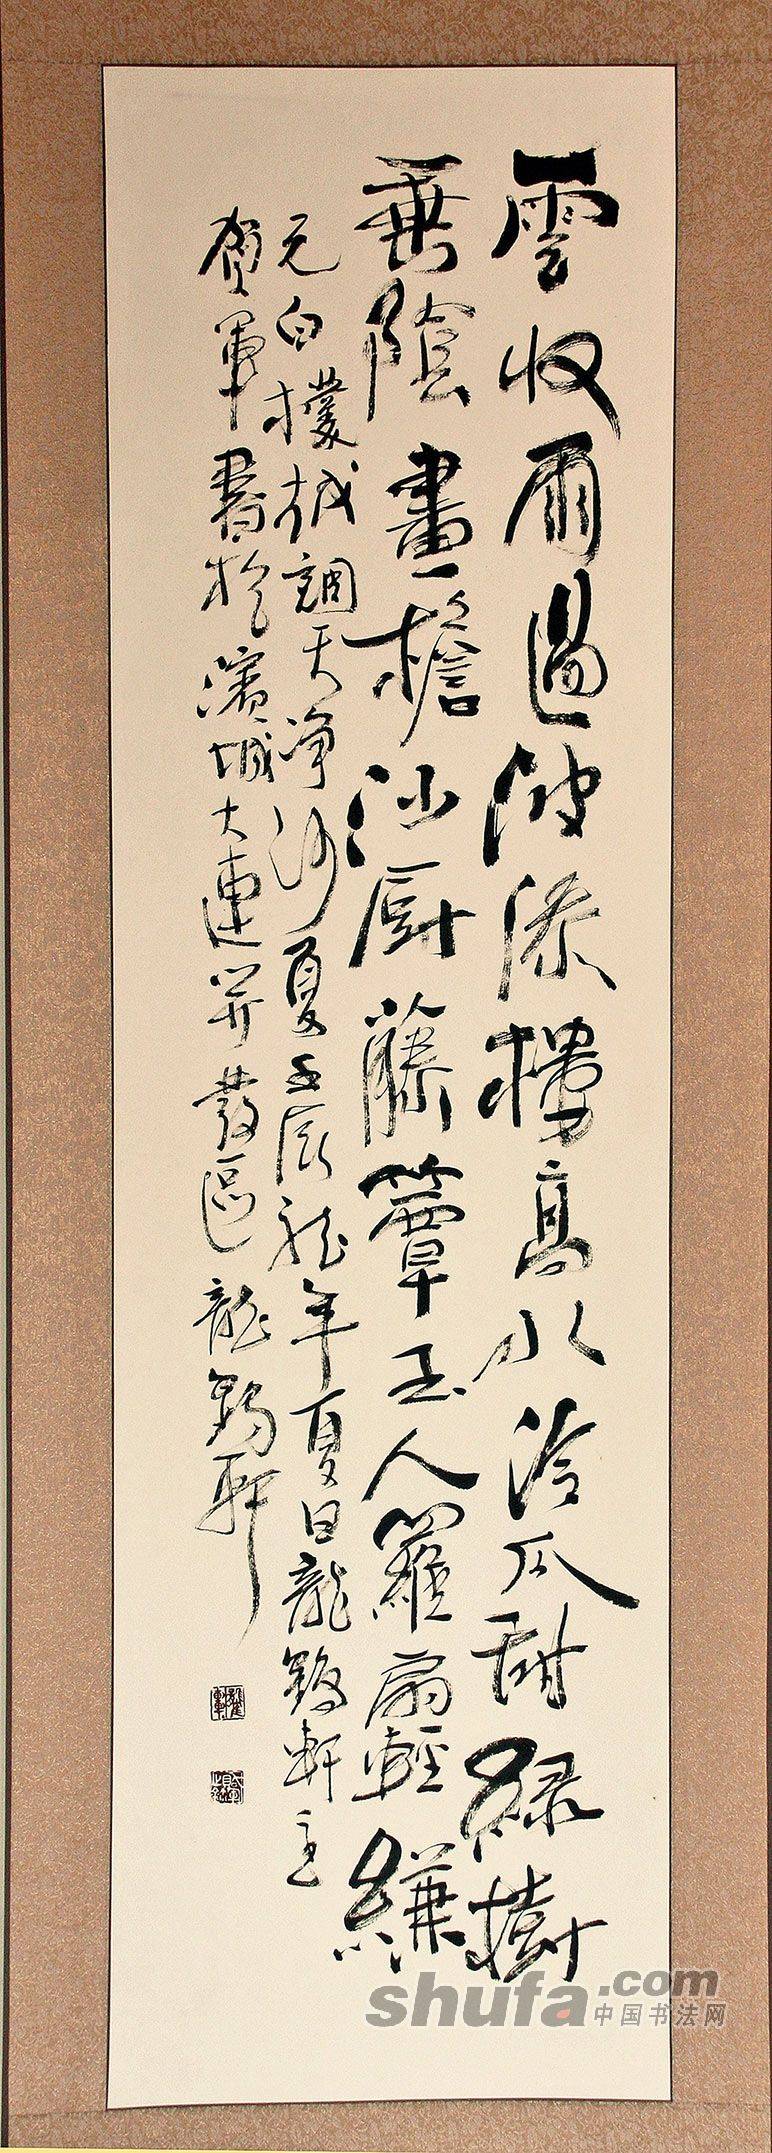 雲收雨過波添樓高水冷瓜甜緑樹
垂陰畫檐沙厨藤簟玉人籮扇輕縑
元白樸越調天净沙夏壬辰龍年夏日龍鶴軒主
賀軍書於濱城大連开發區龍鶴軒
shufa.com
中国书法网